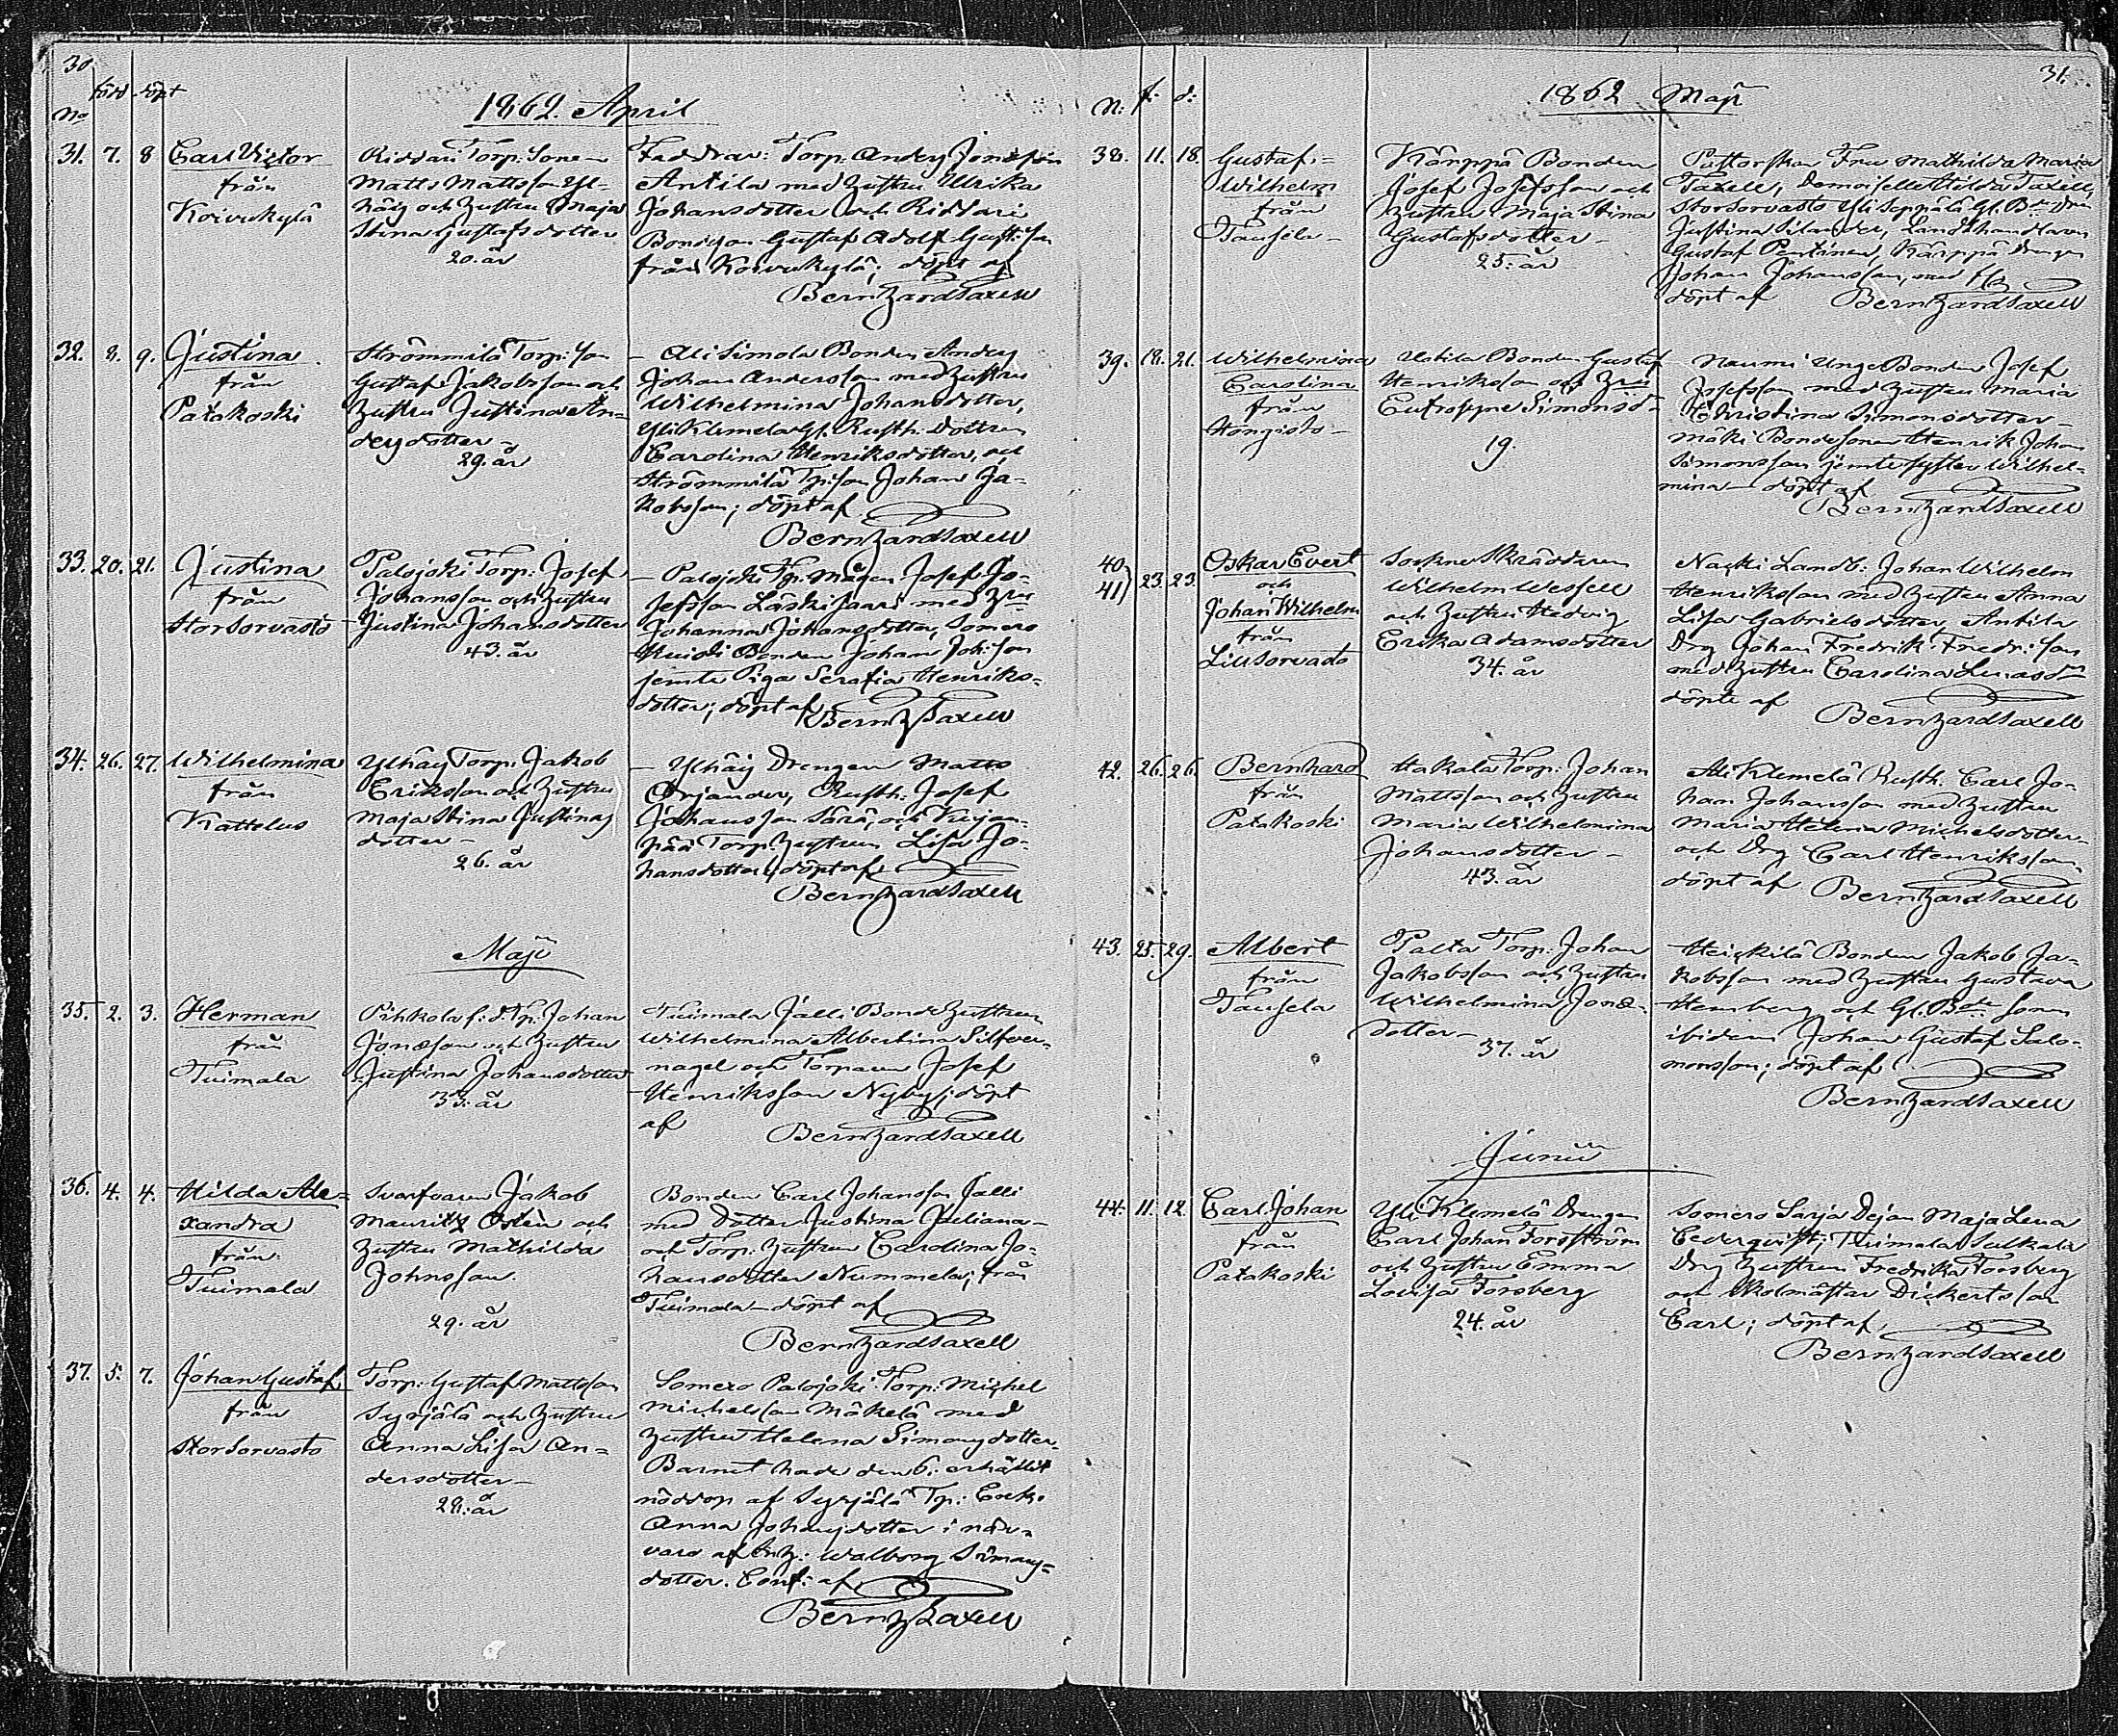 30
född döpt
No
1862. April
31. 7. 8 Carl Victor
från
Koivukylä
Riddari Torp: Sonen
Matts Mattsson Yl-
häig och hustru Maja
Stina Gustafsdotter
20. år
Faddrar: Torp: Anders Jonasson
Antila med hustru Ulrika
Johansdotter och Riddari
Bondson Gustaf Adolf Gust:son
från Koivukylä; döpt af
Bernhard Taxell
32. 8. 9. Justina
från
Patakoski
Strömmilä Torp: Son
Gustaf Jakobsson och
hustru Justina An-
dersdotter
29. år
Ali Simola Bonden Anders
Johan Andersson med hustru
Wilhelmina Johansdotter,
Yli Klemela Gl. Rusth. Dottren
Carolina Henriksdotter, och
Strömmilä Tp:son Johan Ja-
kobsson; döpt af
Bernhard Taxell
33. 20. 21. Justina
från
Storsorvasto
Palojoki Torp: Josef
Johansson och hustru
Justina Johansdotter
43. år
Palojoki Tp: Mågen Josef Jo-
sefsson Läskisaari med hru
Johanna Johansdotter, Somero
Bonden Johan Joh:son
jemte Piga Serafia Henriks-
dotter; döpt af
Bernh Taxell
34. 26. 27. Wilhelmina
från
Kattelus
Ylhäig Torp: Jakob
Eriksson och hustru
Maja Stina Justinas
dotter
26. år
Ylhäig Drengen Matts
Orjander, Rusth: Josef
Johansson Särä, och
Torp: hustrun Lisa Jo-
hansdotter; döpt af
Bernhard Taxell
Maji
35. 2. 3. Herman
från
Tuimala
Pihkola f:d. Tp. Johan
Jonasson och hustru
Justina Johansdotter
33. år
Tuimala Jalli Bonde hustrun
Wilhelmina Albertina Silfver-
nagel och Torparen Josef
Henriksson Nyby; döpt
af
Bernhard Taxell
36. 4. 4. Hilda Ale-
xandra
från
Tuimala
Svarfvaren Jakob
Mauritz Östèn och
hustru Mathilda
Johnsson.
29. år
Bonden Carl Johansson Jalli
med dotter Justina Juliana
och Torp: hustrun Carolina Jo-
hansdotter Nummela; från
Tuimala döpt af
Bernhard Taxell
37. 5. 7. Johan Gustaf
från
Storsorvasto
Torp: Gustaf Mattsson
Syrjälä och hustru
Anna Lisa An-
dersdotter
28. år
Somero Palojoki Torp: Michel
Michelsson Mäkelä med
hustru Helena Simonsdotter.
Barnet hade den 6: erhållit
nöddop af Syrjälä Tp: Enk.
Anna Johansdotter i när-
varo af Walborg Simons-
dotter. Conf: af
Bernh Taxell
31.
N: f: d:
1862 Maji
38. 11. 18. Gustaf
Wilhelm
från
Tausela
Kärppä Bonden
Josef Josefsson och
hustru Maja Stina
Gustafsdotter
25. år
Pastorskan Fru Mathilda Maria
Taxell, Demoiselle Hilda Taxell,
Storsorvasto Yli Seppälä Gl. Bde
Justina Silander, Landthandlaren
Gustaf Pentinen, Kärppä Drengen
Johan Johansson, med fl.
döpt af Bernhard Taxell
39. 18. 21. Wilhelmina
Carolina
från
Hongisto
Uotila Bonden Gustaf
Henriksson och hru
Eufrosyne Simonsd:
19.
Naumi Unge Bonden Josef
Josefsson med hustru Maria
Christina Simonsdotter
mäki Bondesonen Henrik Johan
Simonsson jemte syster Wilhel-
mina döpt af
Bernhard Taxell
40
41) 23. 23. Oskar Evert
och
Johan Wilhelm
från
Lillsorvasto
Sockne Skräddaren
Wilhelm Wessell
och hustru Hedvig
Erika Adamsdotter
34. år
Landb: Johan Wilhelm
Henriksson med hustru Anna
Lisa Gabrielsdotter, Antila
Drg Johan Fredrik Fredr:son
med hustru Carolina
döpte af
Bernhard Taxell
42. 26. 26. Bernhard
från
Patakoski
Hakala Torp: Johan
Mattsson och hustru
Maria Wilhelmina
Johansdotter
43. år
Ali Klemelä Rusth. Carl Jo-
han Johansson med hustru
Maria Helena Michelsdotter
och Drg Carl Henriksson
döpt af Bernhard Taxell
43. 25. 29. Albert
från
Tausela
Palta Torp: Johan
Jakobsson och hustru
Wilhelmina Jonæ-
dotter
37. år
Heickilä Bonden Jakob Ja-
kobsson med hustru Gustava
Hemberg och Gl. Bde sonen
ibidem Johan Gustaf Salo-
monsson; döpt af
Bernhard Taxell
Junii
44. 11. 12. Carl Johan
från
Patakoski
Yli Klemelä Drengen
Carl Johan Forsström
och hustru Emma
Lovisa Forsberg
24. år
Somero Sarja Dejan Maja Lena
Cederqvist; Tuimala Sulkala
Drg hustrun Fredrika Forsberg
och Skolmästar Dickertsson
Carl; döpt af
Bernhard Taxell